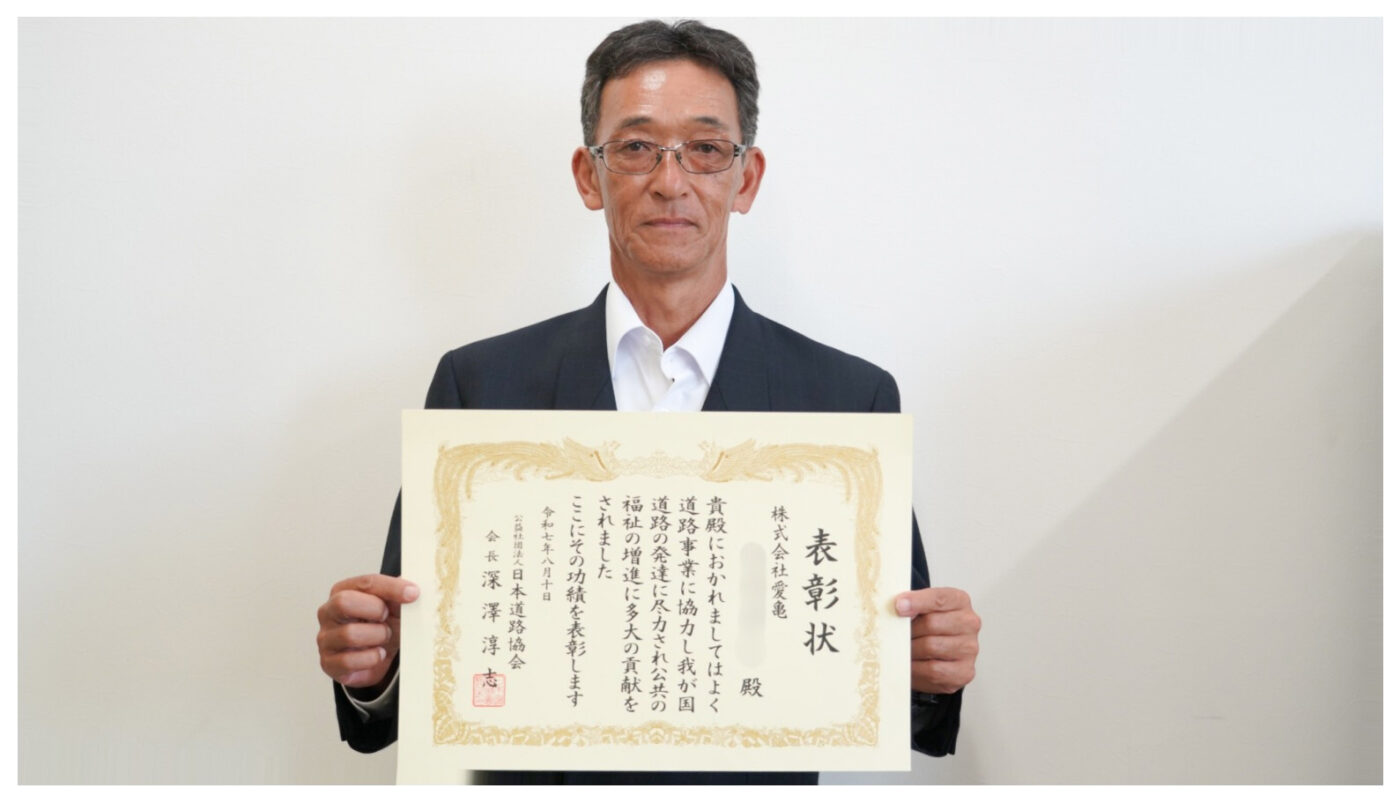 表彰状
株式会社愛亀
殿
貴殿におかれましてはよく
道路事業に協力し我が国
道路の発達に尽力され公共の
福祉の増進に多大の貢献を
されました
ここにその功績を表彰します
令和七年八月十日
公益社団法人日本道路協会
会長 深澤淳志